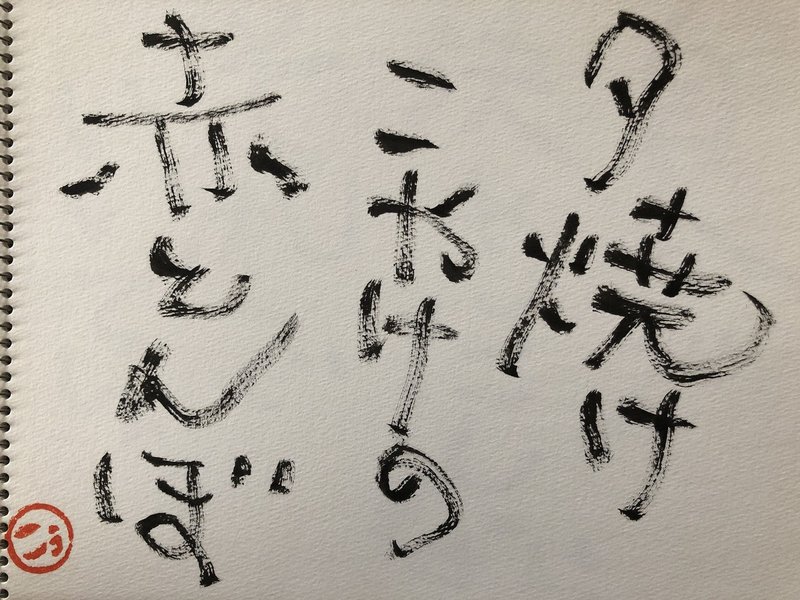 夕焼け
こやけの
赤とんぼ